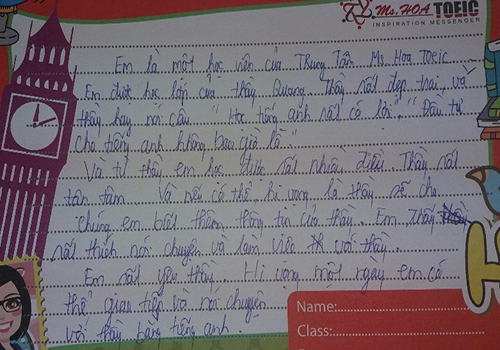 Ms.HOA TOEIC
INSPIRATION MESSENGER
Em là một học viên của Trung Tâm Ms Hoa Toeic
Em được học lớp của thầy Quang. Thầy rất đẹp trai, và
thầy hay nói câu "Học tiếng anh rất có lời". "Đầu tư
cho tiếng anh không bao giờ lỗ"
Và từ thầy em học được rất nhiều điều. Thầy rất
tận tâm Và nếu có thể, hi vọng là thầy sẽ cho
chúng em biết thêm thông tin của thầy. Em Thấy
rất thích nói chuyện và làm việc với thầy.
Em rất yêu thầy. Hi vọng một ngày em có
thể giao tiếp và nói chuyện
với thầy bằng tiếng anh.
Name:
Class: